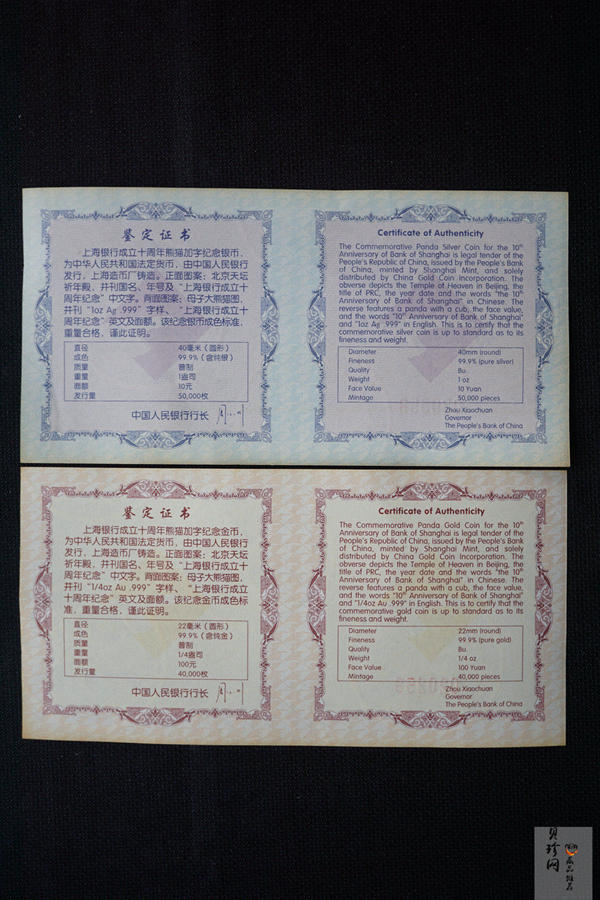 鉴定证书
上海银行成立十周年熊猫加字纪念银币，
为中华人民共和国法定货币，由中国人民银行
发行，上海造币厂铸造。正面图案：北京天坛
祈年殿，并刊国名、年号及“上海银行成立十
周年纪念”中文字。背面图案：母子大熊猫图，
并刊“1oz Ag .999”字样、“上海银行成立十
周年纪念”英文及面额。该纪念银币成色标准，
重量合格，谨此证明。
直径 40毫米（圆形）
成色 99.9%（含纯银）
质量 普制
重量 1盎司
面额 10元
发行量 50,000枚
中国人民银行行长
Certificate of Authenticity
The Commemorative Panda Silver Coin for the 10th
Anniversary of Bank of Shanghai is legal tender of the
People's Republic of China, issued by the People's Bank
of China, minted by Shanghai Mint, and solely
distributed by China Gold Coin Incorporation. The
obverse depicts the Temple of Heaven in Beijing, the
title of PRC, the year date and the words "the 10th
Anniversary of Bank of Shanghai" in Chinese. The
reverse features a panda with a cub, the face value,
and the words "10th Anniversary of Bank of Shanghai"
and "1oz Ag .999" in English. This is to certify that the
commemorative silver coin is up to standard as to its
fineness and weight.
Diameter 40mm (round)
Fineness 99.9% (pure silver)
Quality Bu.
Weight 1 oz
Face Value 10 Yuan
Mintage 50,000 pieces
Zhou Xiaochuan
Governor
The People's Bank of China
鉴定证书
上海银行成立十周年熊猫加字纪念金币，
为中华人民共和国法定货币，由中国人民银行
发行，上海造币厂铸造。正面图案：北京天坛
祈年殿，并刊国名、年号及“上海银行成立十
周年纪念”中文字。背面图案：母子大熊猫图，
并刊“1/4oz Au .999”字样、“上海银行成立
十周年纪念”英文及面额。该纪念金币成色标
准，重量合格，谨此证明。
直径 22毫米（圆形）
成色 99.9%（含纯金）
质量 普制
重量 1/4盎司
面额 100元
发行量 40,000枚
中国人民银行行长
Certificate of Authenticity
The Commemorative Panda Gold Coin for the 10th
Anniversary of Bank of Shanghai is legal tender of the
People's Republic of China, issued by the People's Bank
of China, minted by Shanghai Mint, and solely
distributed by China Gold Coin Incorporation. The
obverse depicts the Temple of Heaven in Beijing, the
title of PRC, the year date and the words "the 10th
Anniversary of Bank of Shanghai" in Chinese. The
reverse features a panda with a cub, the face value,
and the words "10th Anniversary of Bank of Shanghai"
and "1/4oz Au .999" in English. This is to certify that the
commemorative gold coin is up to standard as to its
fineness and weight.
Diameter 22mm (round)
Fineness 99.9% (pure gold)
Quality Bu.
Weight 1/4 oz
Face Value 100 Yuan
Mintage 40,000 pieces
Zhou Xiaochuan
Governor
The People's Bank of China
贝珍网